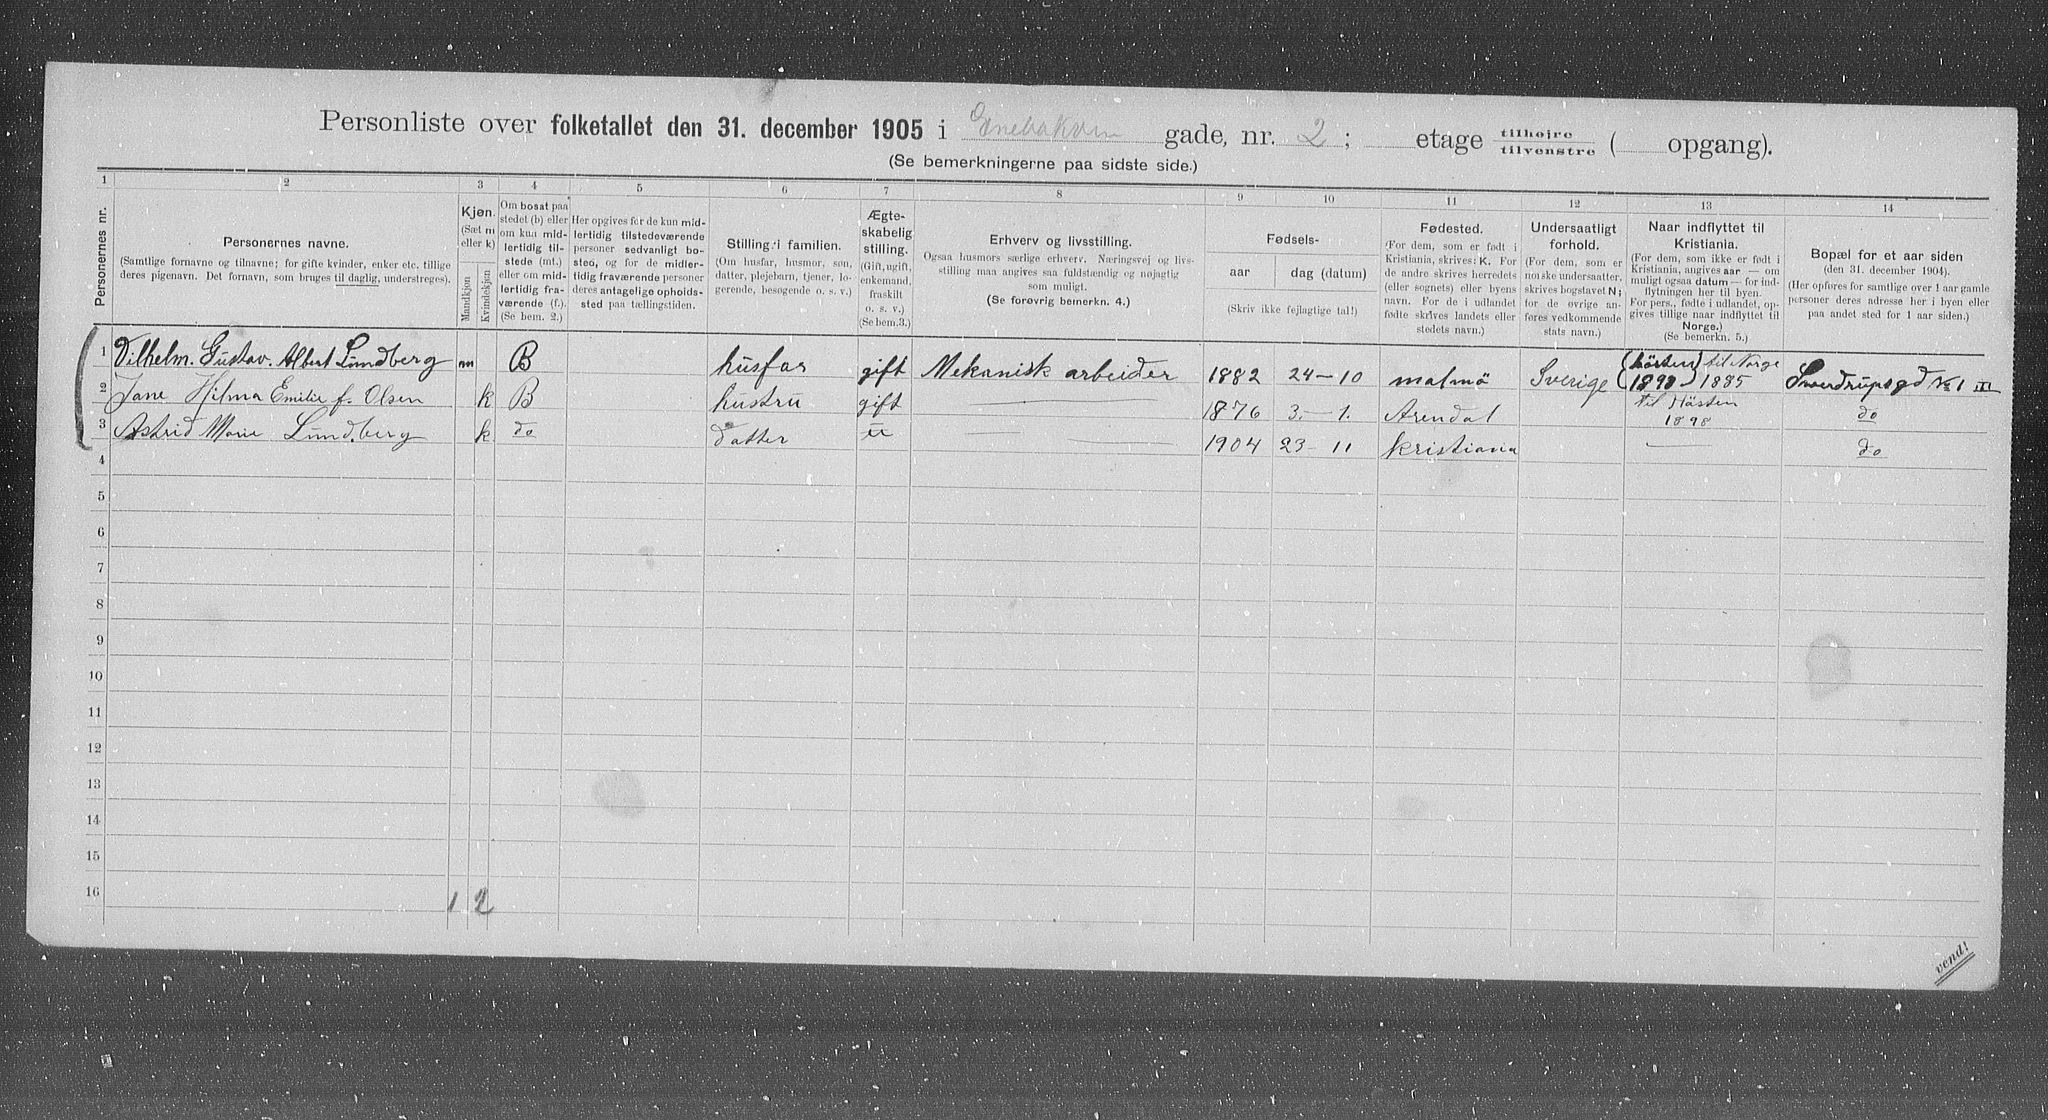 Personliste over folketallet den 31. december 1905 i Enebakvei gade, nr. 2; etage tilhøire / tilvenstre ( opgang).
(Se bemerkningerne paa sidste side.)
1 2 3 4 5 6 7 8 9 10 11 12 13 14
Personernes nr.
Personernes navne.
(Samtlige fornavne og tilnavne; for gifte kvinder, enker etc. tillige
deres pigenavn. Det fornavn, som bruges til daglig, understreges).
Kjøn.
(Sæt m
eller k)
Mandkjøn
Kvindekjøn
Om bosat paa
stedet (b) eller
om kun mid-
lertidig til-
stede (mt.)
eller om mid-
lertidig fra-
værende (f.).
(Se bem. 2.)
Her opgives for de kun mid-
lertidig tilstedeværende
personer sedvanligt bo-
sted, og for de midler-
tidig fraværende personer
deres antagelige opholds-
sted paa tællingstiden.
Stilling i familien.
(Om husfar, husmor, søn,
datter, plejebarn, tjener, lo-
gerende, besøgende o. s. v.)
Ægte-
skabelig
stilling.
(Gift, ugift,
enkemand,
fraskilt
o. s. v.)
(Se bem. 3.)
Erhverv og livsstilling.
Ogsaa husmors særlige erhverv. Næringsvej og livs-
stilling maa angives saa fuldstændig og nøjagtig
som muligt.
(Se forøvrig bemerkn. 4.)
Fødsels-
aar dag (datum)
(Skriv ikke fejlagtige tal!)
Fødested.
(For dem, som er født i
Kristiania, skrives: K. For
de andre skrives herredets
(eller sognets) eller byens
navn. For de i udlandet
fødte skrives landets eller
stedets navn.)
Undersaatligt
forhold.
(For dem, som er
norske undersaatter,
skrives bogstavet N;
for de øvrige an-
føres vedkommende
stats navn.)
Naar indflyttet til
Kristiania.
(For dem, som ikke er født i
Kristiania, angives aar — om
muligt ogsaa datum — for ind-
flytningen her til byen.
For pers., fødte i udlandet, op-
gives tillige naar indflyttet til
Norge.)
(Se bemerkn. 5.)
Bopæl for et aar siden
(den 31. december 1904).
(Her opføres for samtlige over 1 aar gamle
personer deres adresse her i byen eller
paa andet sted for 1 aar siden.)
1 Vilhelm. Gustav. Albert Lundberg m B husfar gift Mekanisk arbeider 1882 24–10 malmö Sverige (hösten 1898) til Norge 1885 Sverdrupsgd No 1 III
2 Jane Hilma Emilie f. Olsen k B hustru gift 1876 3.–1. Arendal til Hösten 1898 do
3 Astrid Marie Lundberg k do datter u 1904 23–11 Kristiania — do
4
5
6
7
8
9
10
11
12
13
14
15
16
1 2
vend!